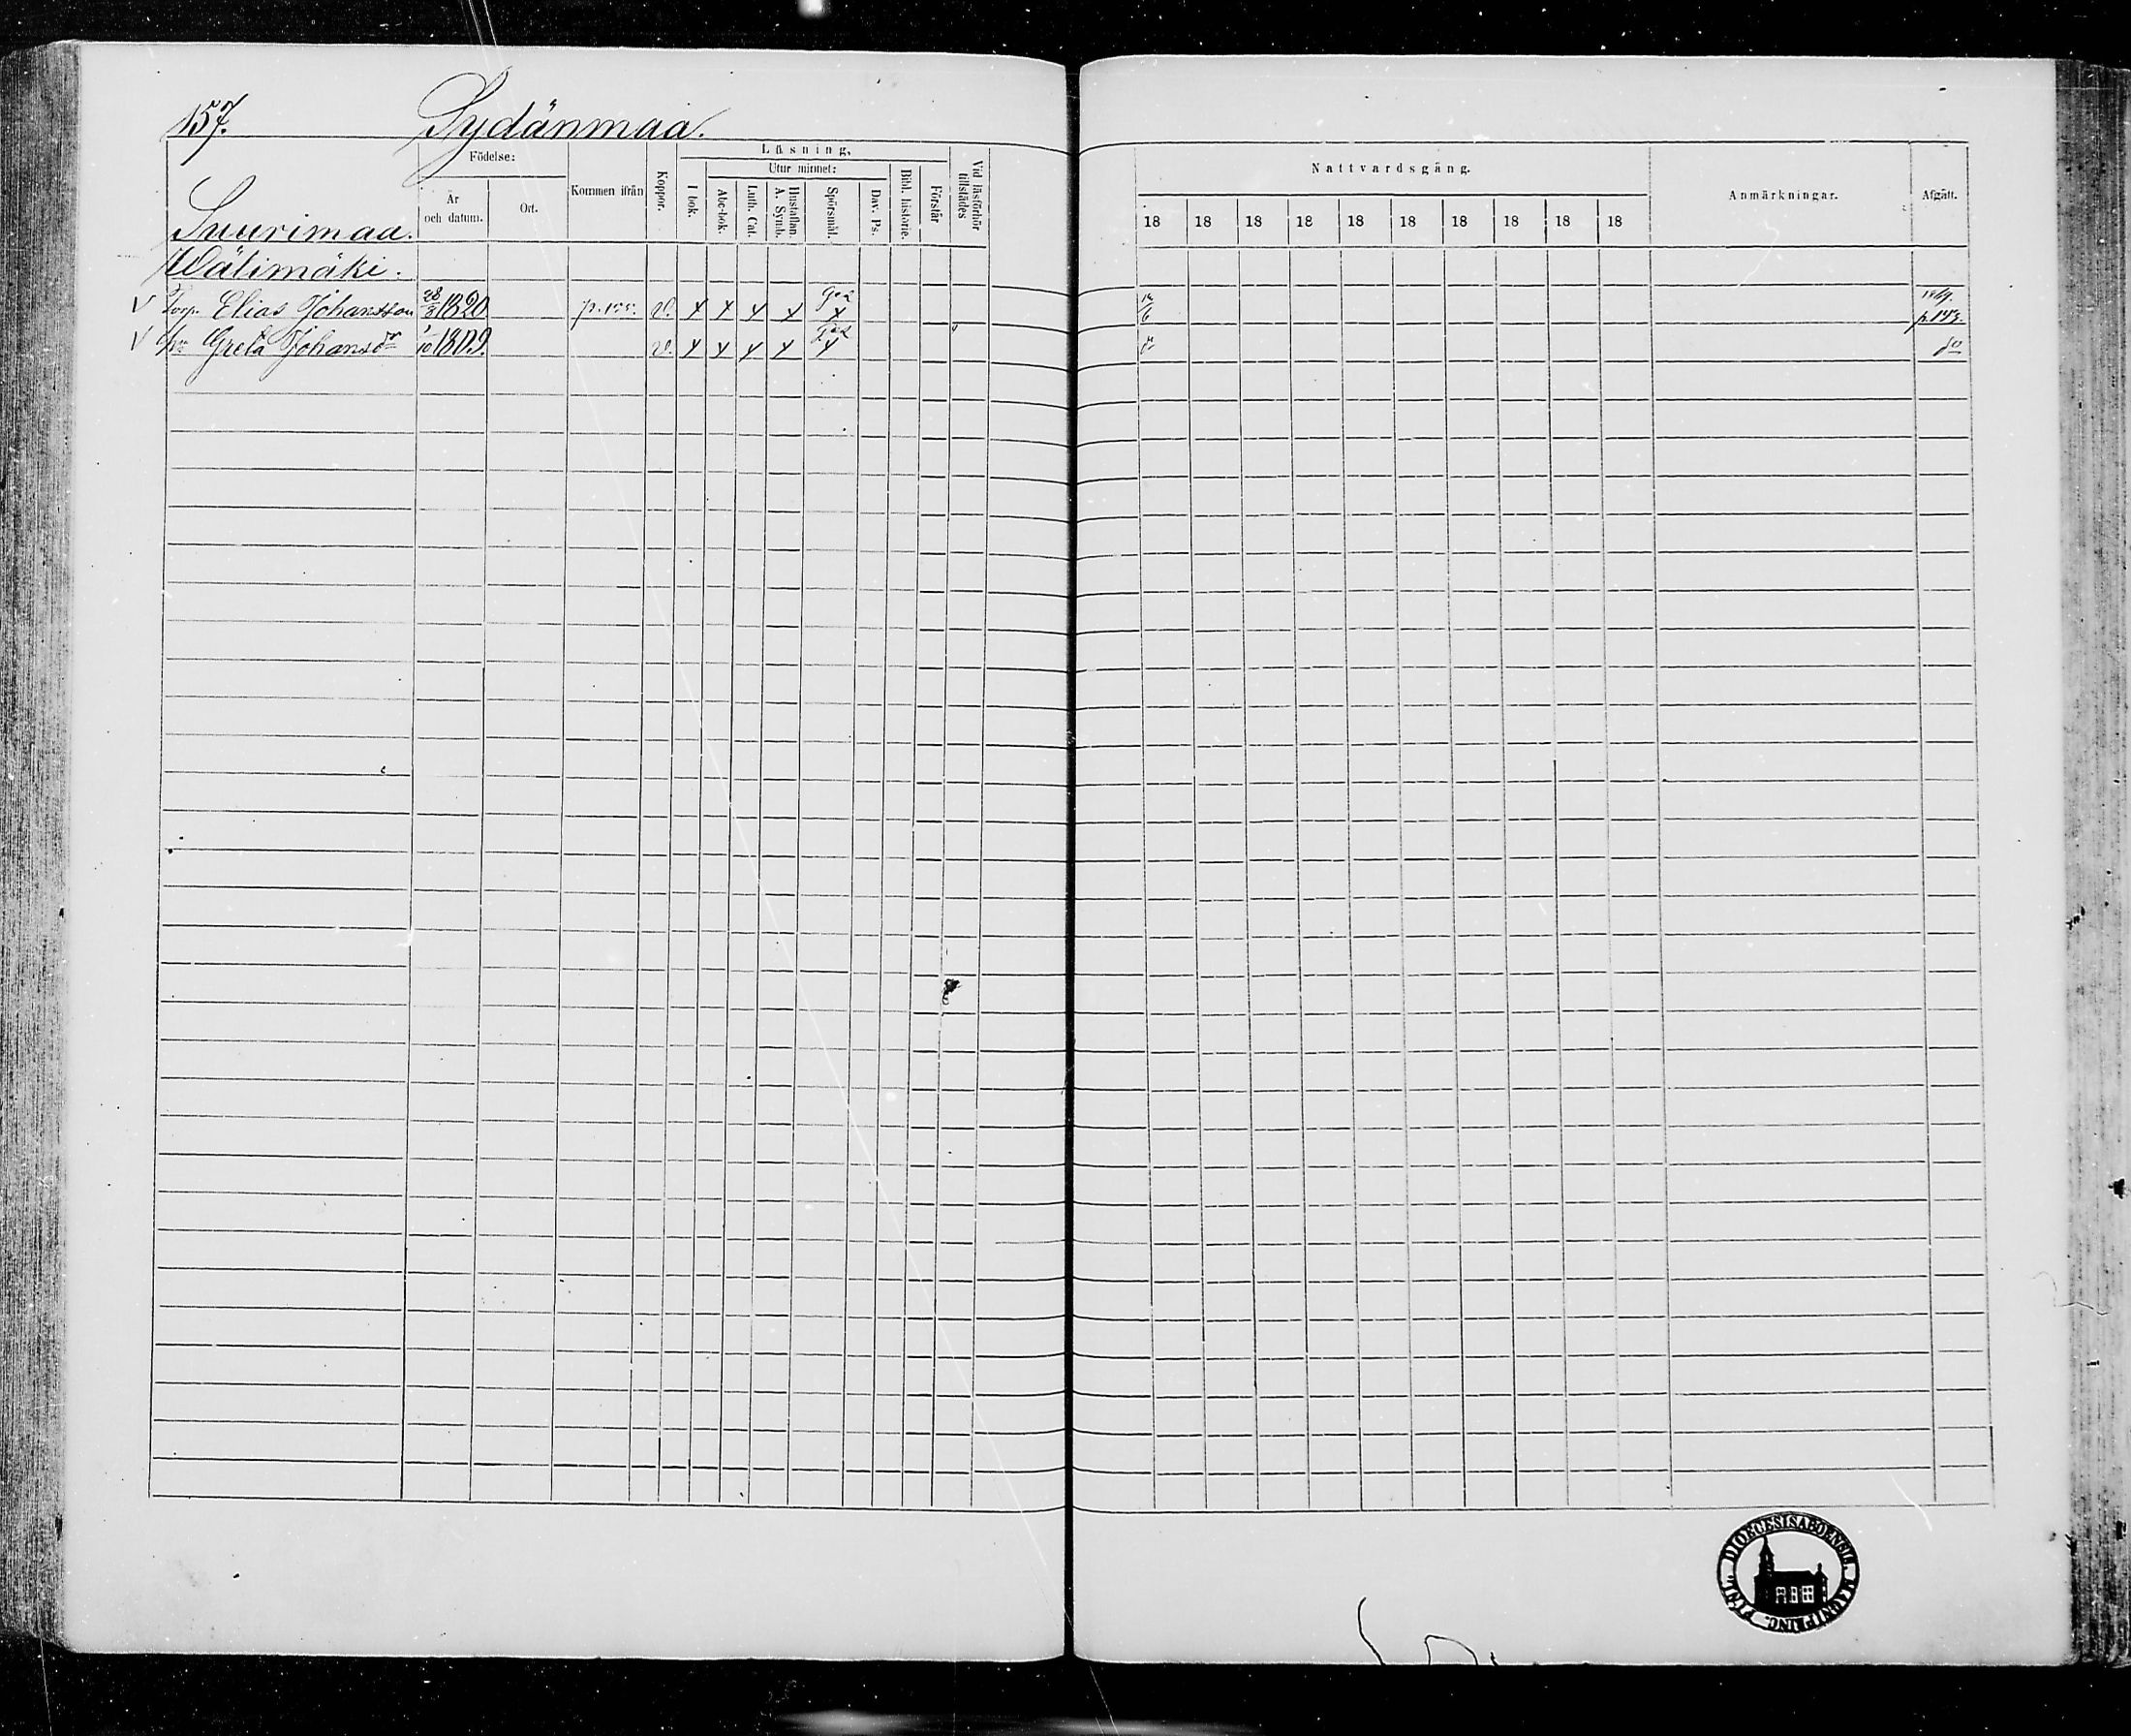 157. Sydänmaa.
Läsning.
Födelse:
Utur minnet:
Kommen ifrån
Koppor.
I bok.
Abc-bok.
Luth. Cat.
Hustaflan.
A. Symb.
Spörsmål.
Dav. Ps.
Bibl. historie.
Förstår
Vid läsförhör
tillstädes
År
och datum.
Ort.
Suurimaa.
Wälimäki.
Torp. Elias Johansson 28/3 1820 v. x x x x x
Greta Johansd:r 1809. v. x x x x x
Nattvardsgång.
Anmärkningar.
Afgått.
18 18 18 18 18 18 18 18 18 18
1869.
p. 143.
d:o
DIOECESIS ABOENSIS